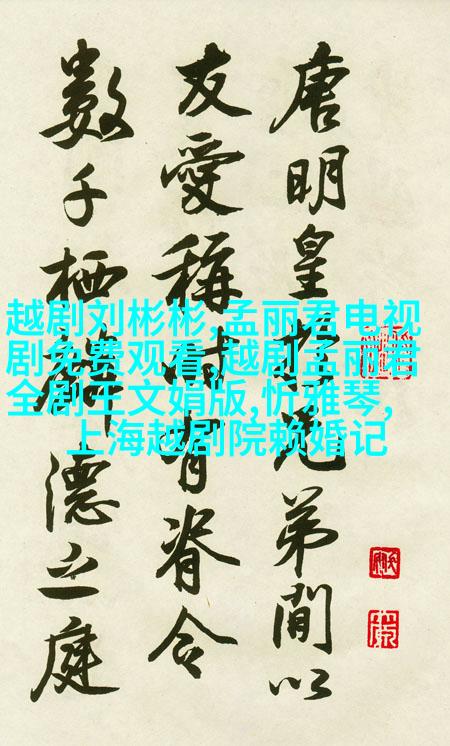 唐明皇兄弟間以
友愛稱時有脊令
數千栖麟德之庭
越剧刘彬彬,孟丽君电视
剧免费观看,越剧孟丽君
全剧王文娟版,忻雅琴,
上海越剧院赖婚记